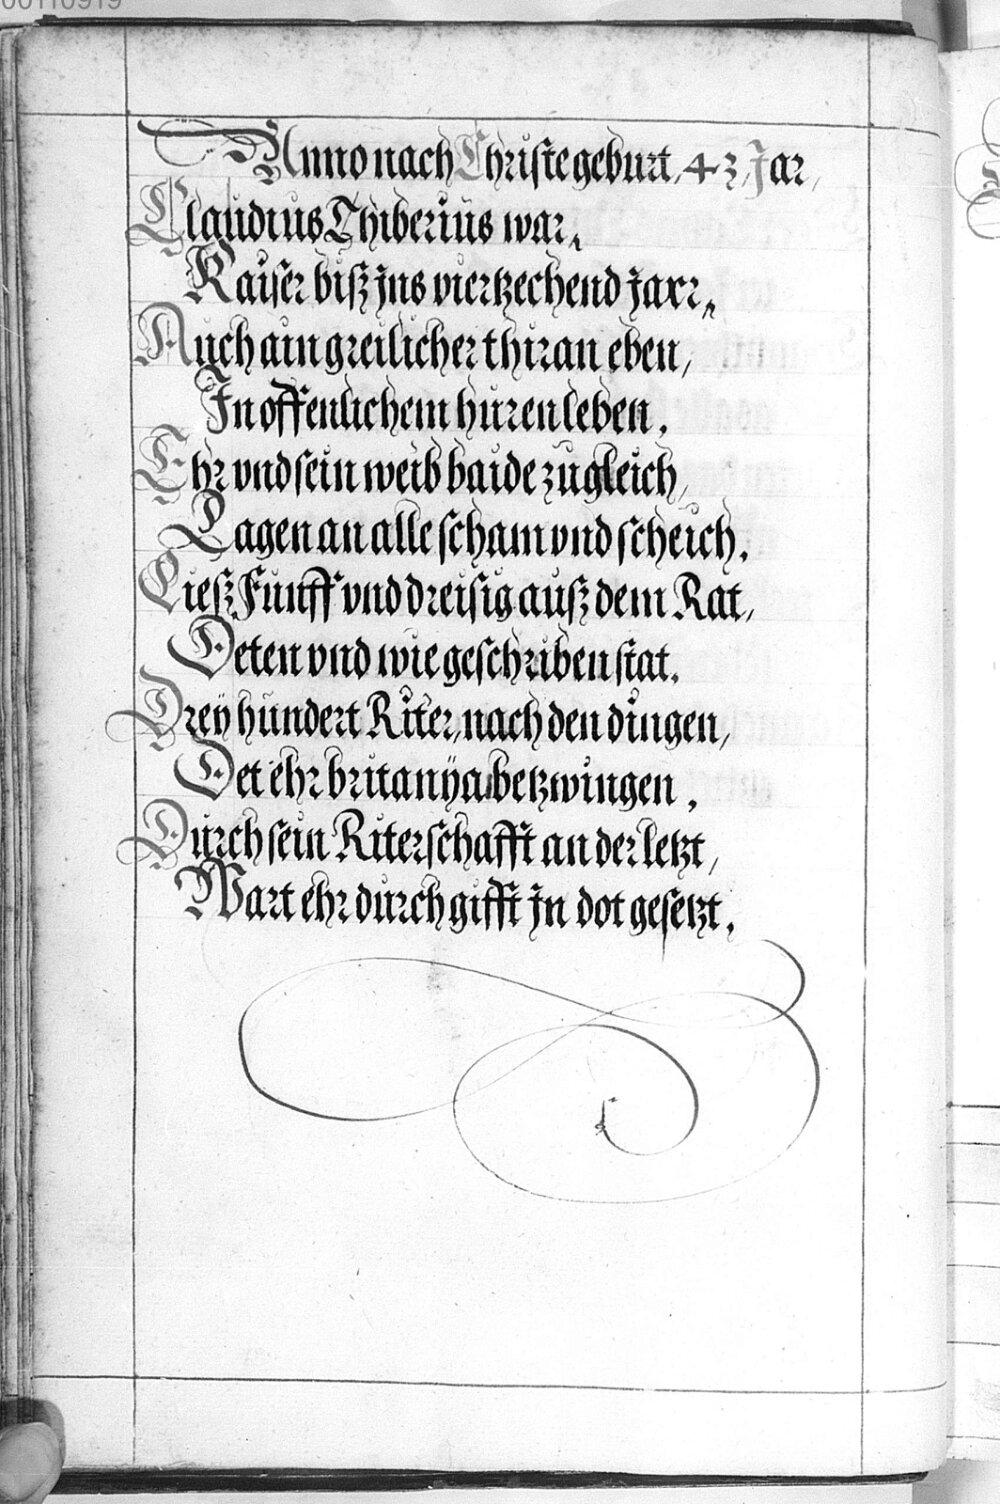 00110919
Anno nach Christe geburt, 43, Jar,
Claudius Thiberius war,
Kaiser biß Jns viertzechend Jarr,
Auch ain greilicher thiran eben,
In offenlichem huren leben,
Ehr vnd sein weib baide zu gleich,
Lagen an alle scham vnd scheich,
Ließ Funff vnd dreisig auß dem Rat,
Deten vnd wie geschriben stat,
Drey hundert Riter, nach den dingen,
Det ehr britanya betzwingen,
Durch sein Riterschafft an der letzt,
Wart ehr durch gifft Jn dot gesetzt,